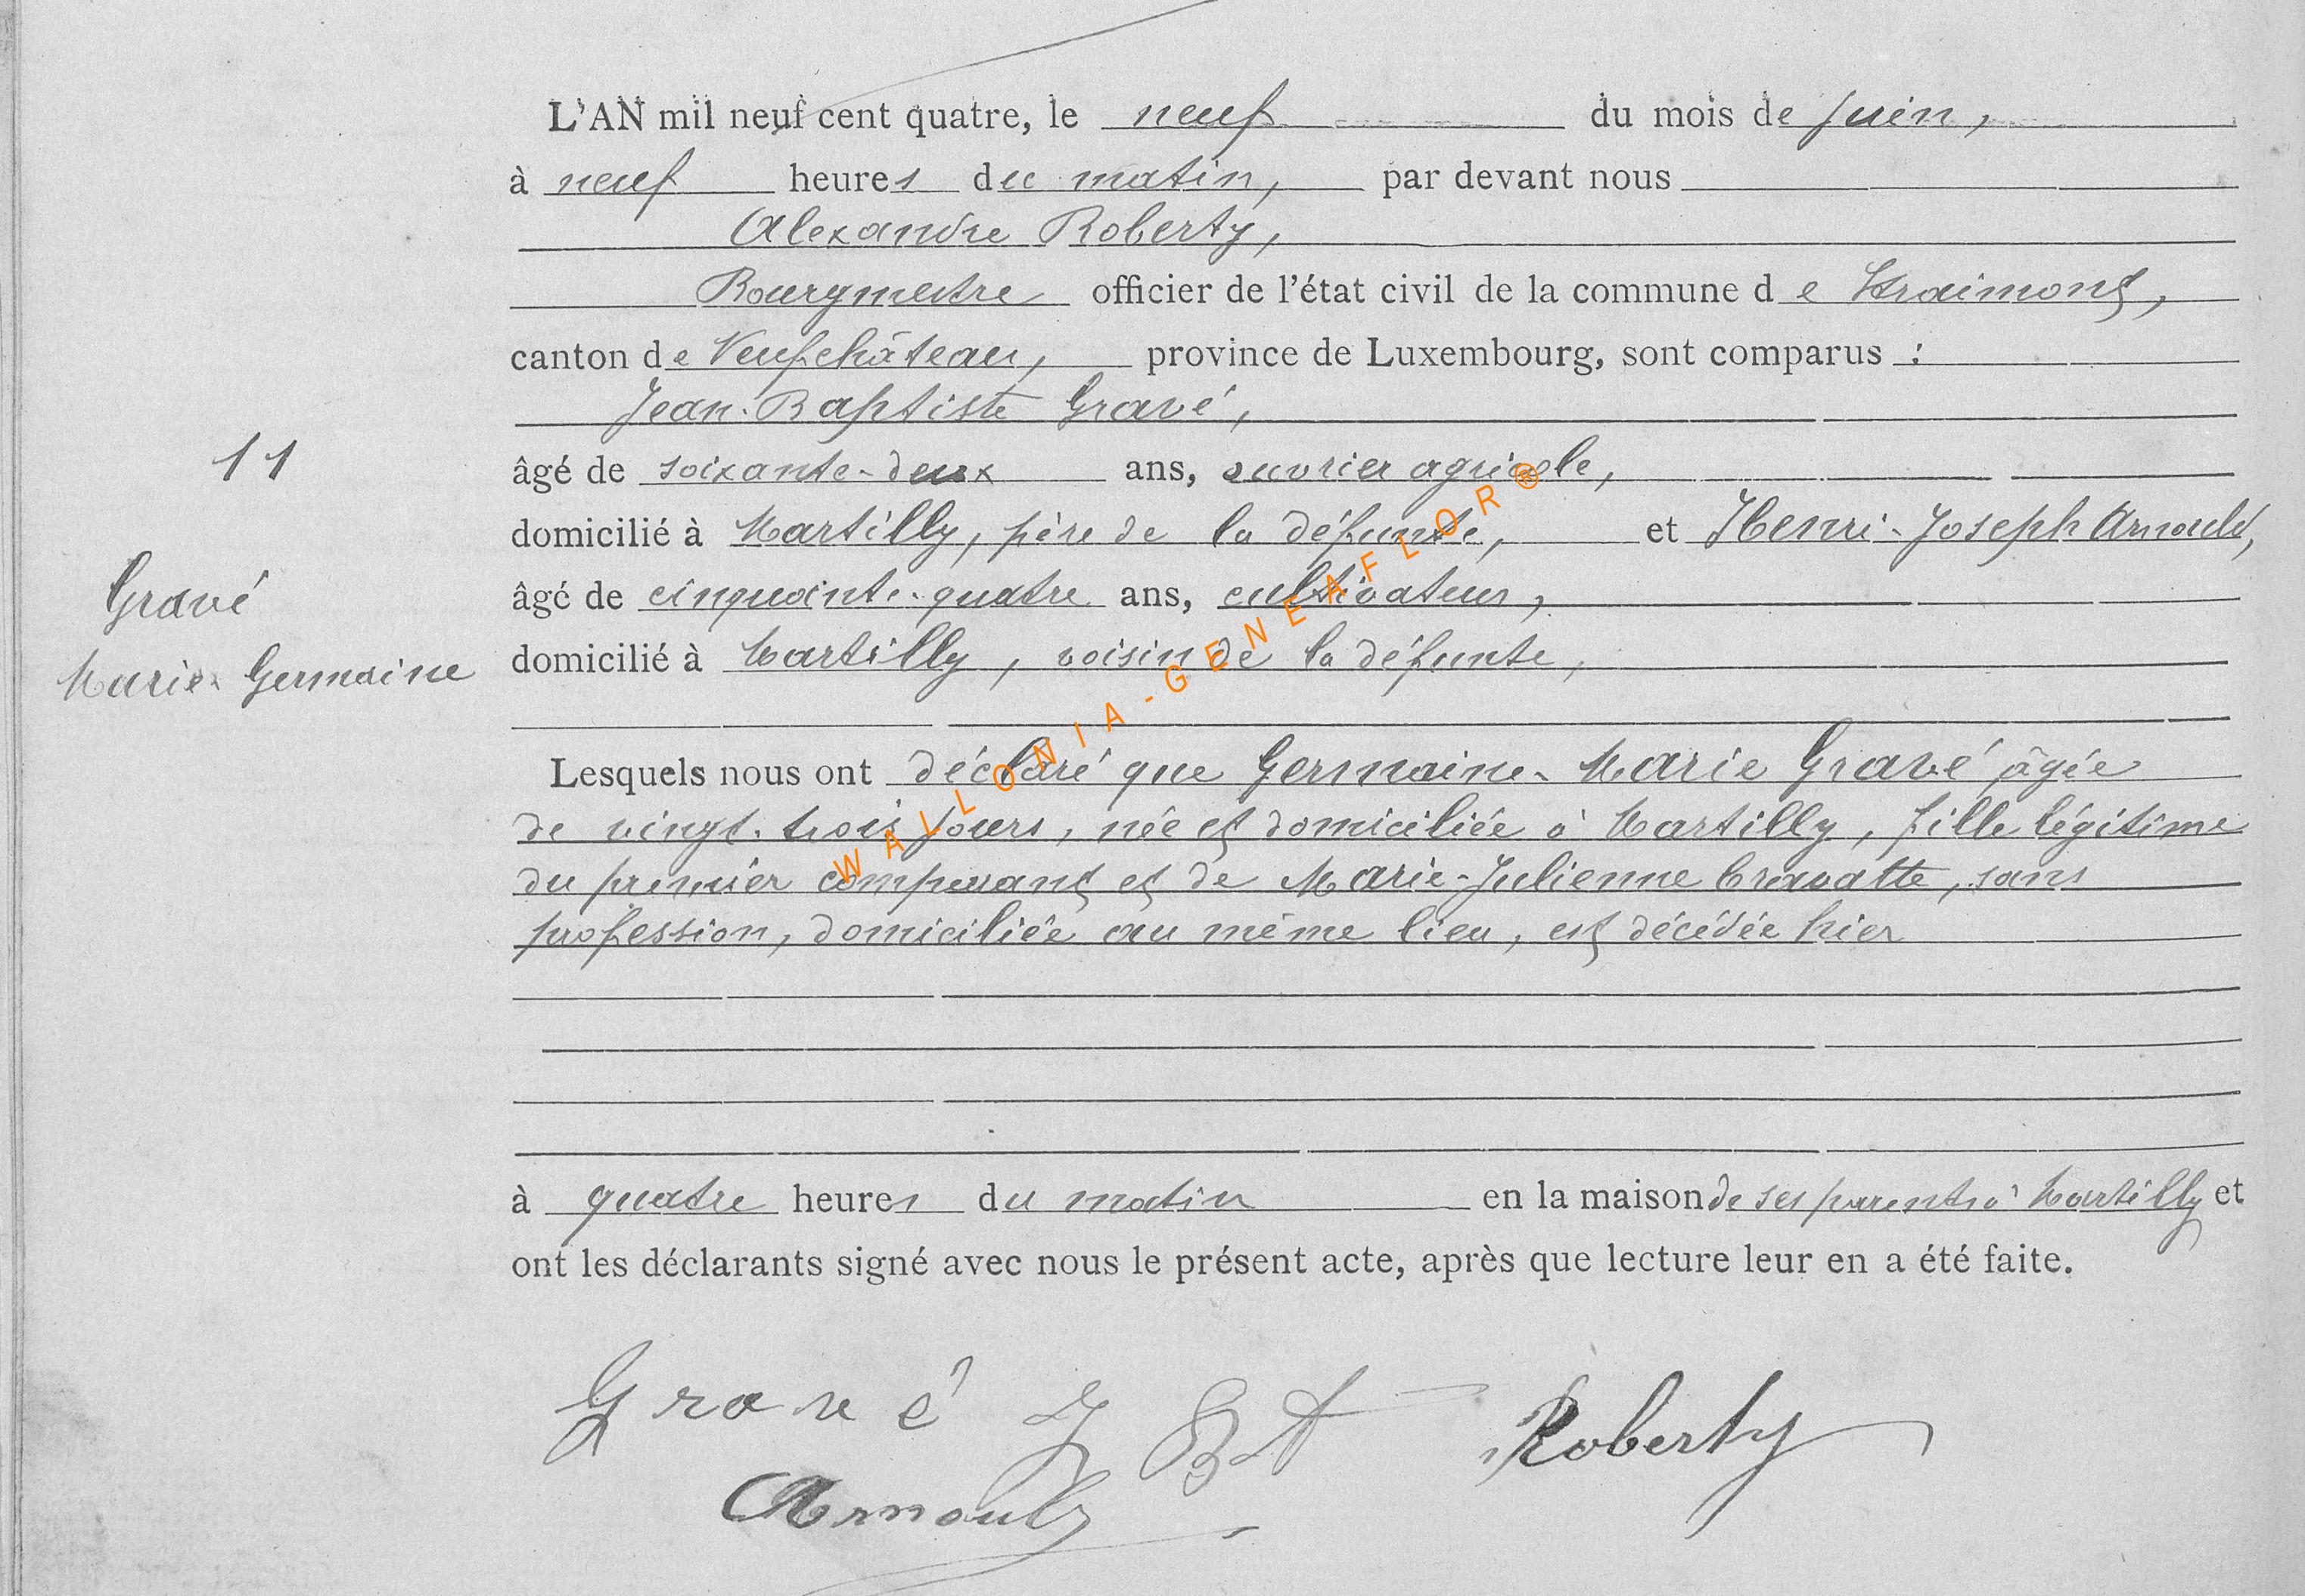 L'AN mil neuf cent quatre, le neuf du mois de Juin,
à neuf heures du matin, par devant nous
Alexandre Roberty,
Bourgmestre officier de l'état civil de la commune de Straimont,
canton de Neufchâteau, province de Luxembourg, sont comparus :
Jean-Baptiste Gravé,
11
âgé de soixante-deux ans, ouvrier agricole,
domicilié à Martilly, père de la défunte, et Henri-Joseph Arnould,
Gravé
Marie-Germaine
âgé de cinquante-quatre ans, cultivateur,
domicilié à Martilly, voisin de la défunte,
Lesquels nous ont déclaré que Germaine-Marie Gravé âgée
de vingt-trois jours, née et domiciliée à Martilly, fille légitime
du premier comparant et de Marie-Julienne Cravatte, sans
profession, domiciliée au même lieu, est décédée hier
à quatre heures du matin en la maison de ses parents à Martilly et
ont les déclarants signé avec nous le présent acte, après que lecture leur en a été faite.
Gravé J Bt Roberty
Arnould
WALLONIA-GENEAFLOR®